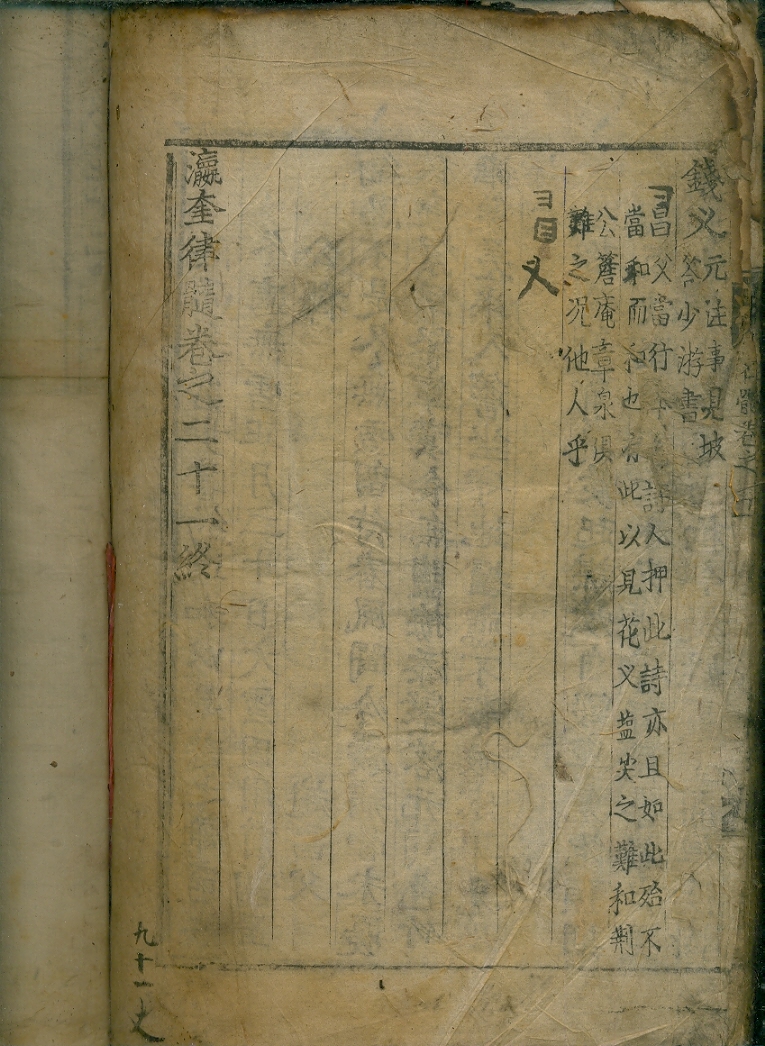 錢义
元注事見坡
答少游書
昌父當行詩人押此詩亦且如此殆不
當和而和也有此以見花义盐尖之難和荆
公簷庵章泉俱
難之况他人乎
目义
瀛奎律髓卷之二十一終
九十一